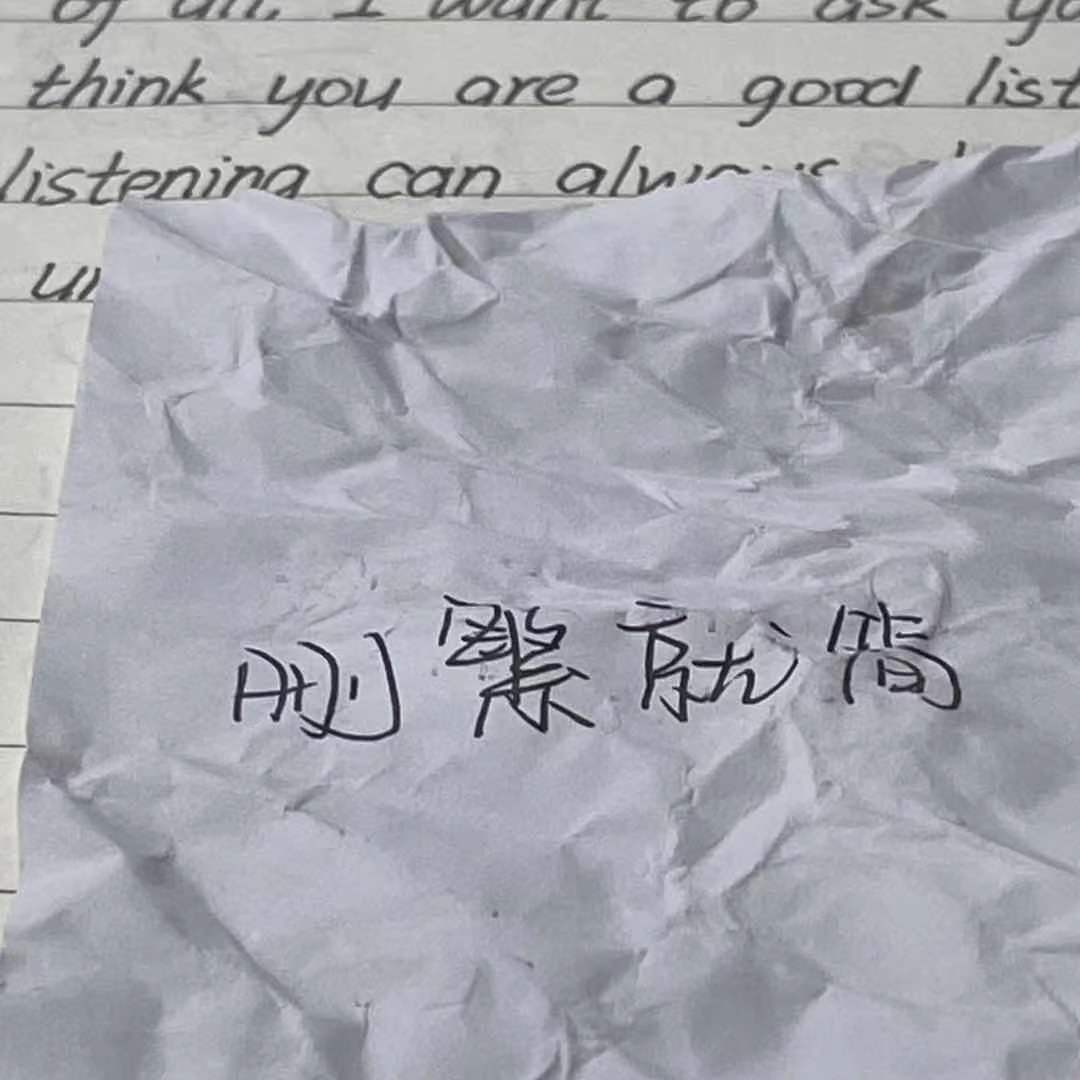 of all, I want to ask
think you are a good
listening can
删繁就简